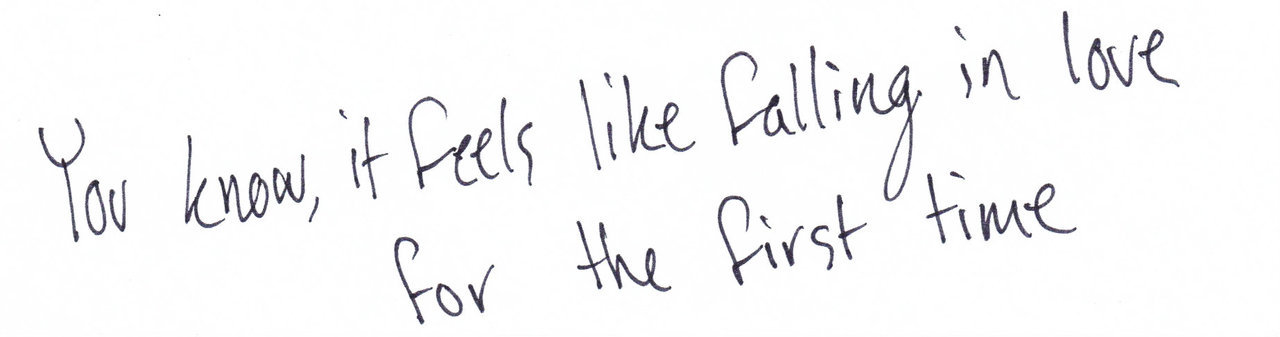 You know, it feels like falling in love
for the first time